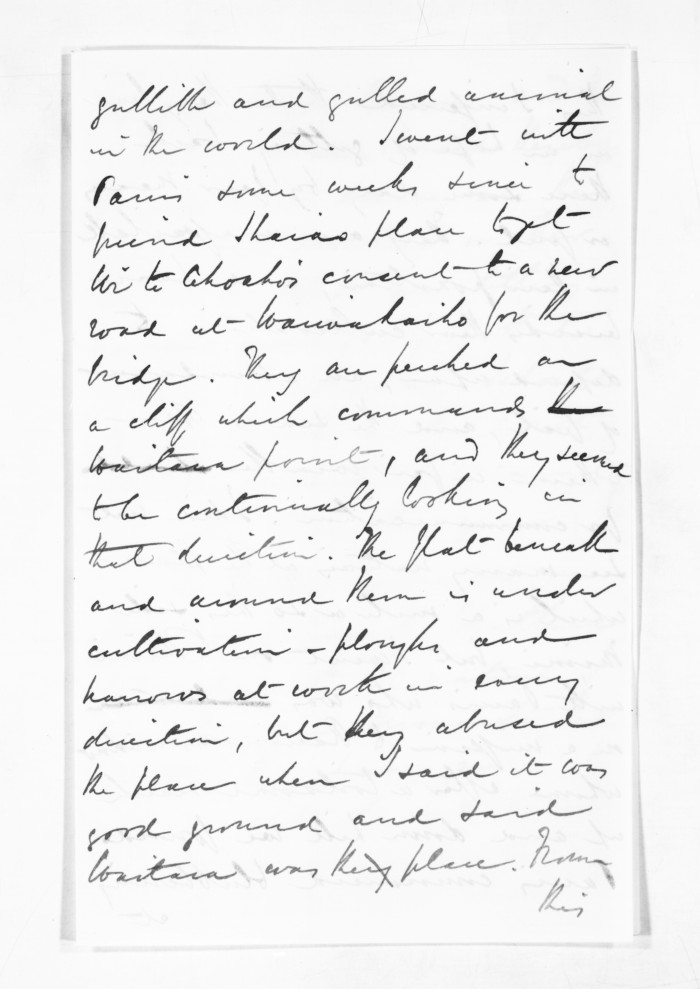 gullible and gulled animal
in the world. I went with
Parris some weeks since to
friend Ihaias place to get
Wi te Ahoaho's consent to a new
road at Waiwakaiho for the
bridge. They are perched on
a cliff which commands the
Waitara point, and they seemed
to be continually looking in
that direction. The flat beneath
and around them is under
cultivation - ploughs and
harrows at work in every
direction, but they abused
the place when I said it was
good ground and said
Waitara was their place. From
this